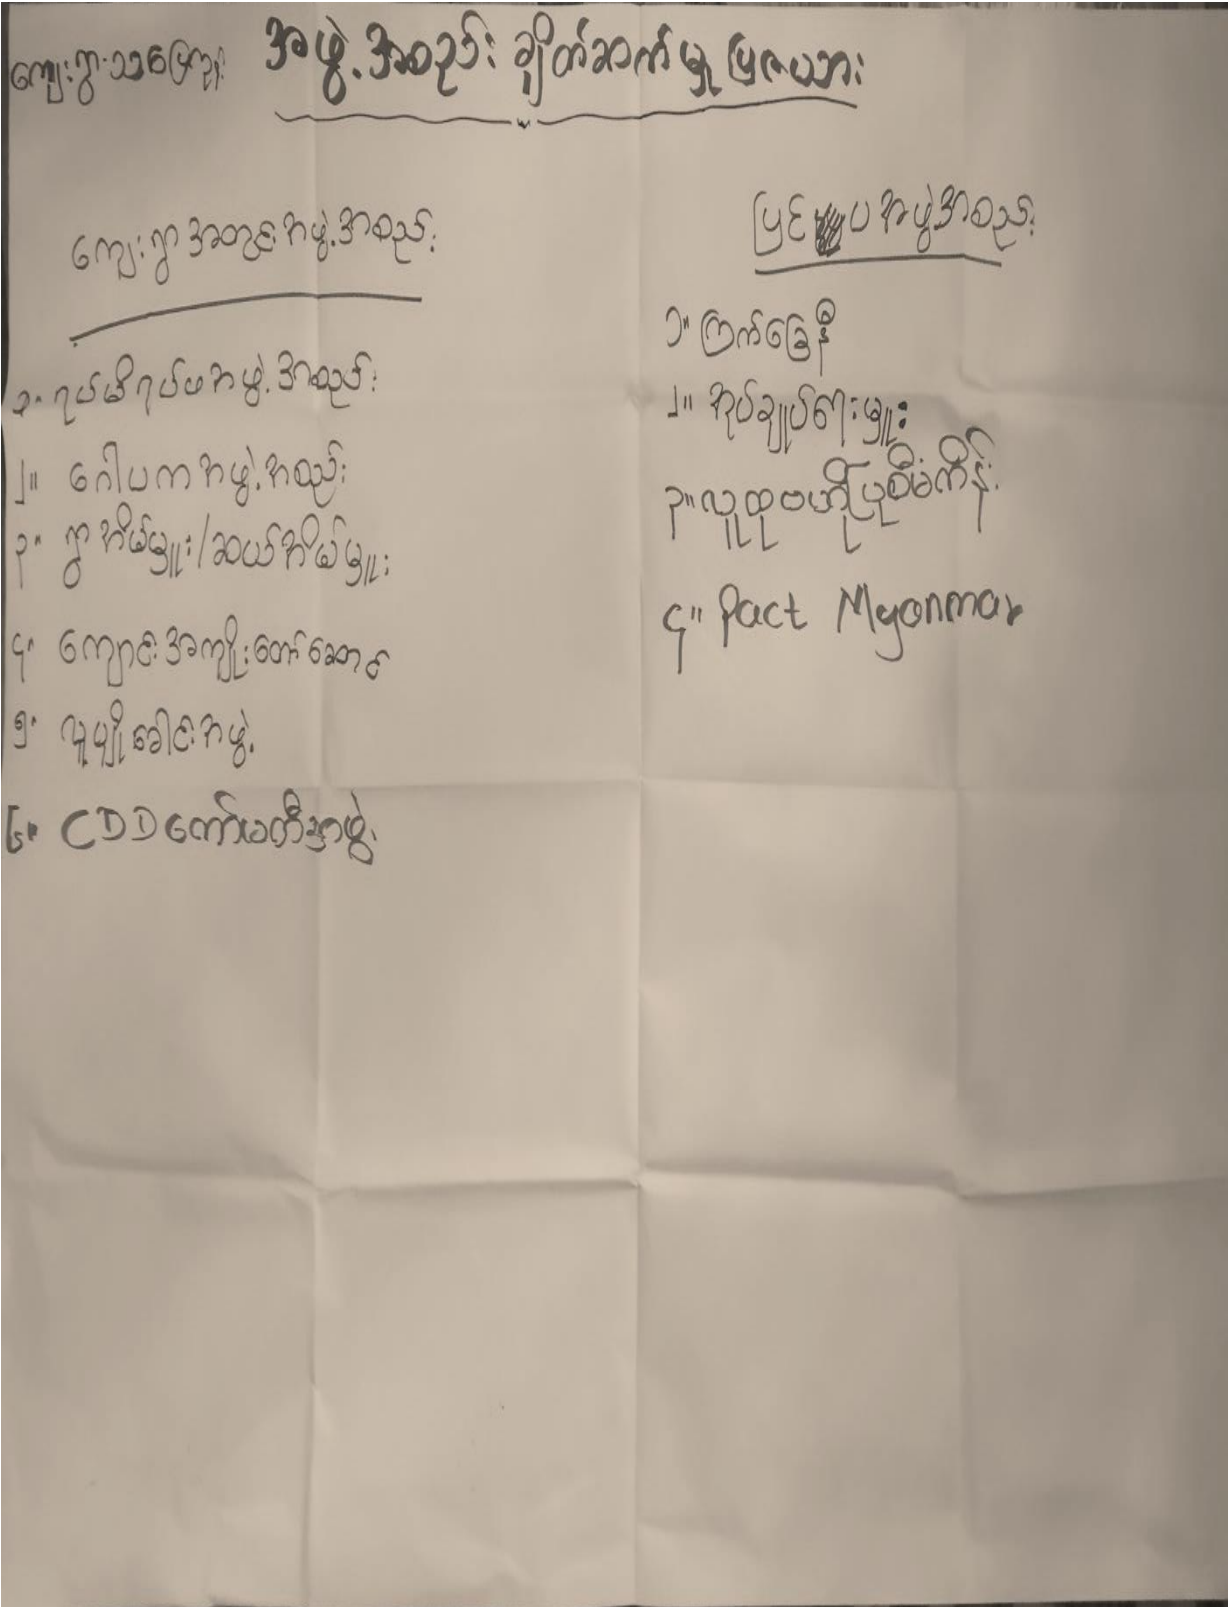 ကျေးရွာ
အဖွဲ့အစည်း ချိတ်ဆက်မှု ပြဇယား
ကျေးရွာအတွင်းအဖွဲ့အစည်း
၁။ ရပ်မိရပ်ဖအဖွဲ့အစည်း
၂။ ဂေါပကအဖွဲ့အစည်း
၃။ ရွာအိမ်မှူး/ဆယ်အိမ်မှူး
၄။ ကျောင်းအကျိုးတော်ဆောင်
၅။ လူပျိုခေါင်းအဖွဲ့
၆။ CDDကော်မတီအဖွဲ့
ပြင်ပအဖွဲ့အစည်း
၁။ ကြက်ခြေနီ
၂။ အုပ်ချုပ်ရေးမှူး
၃။ လူထုဗဟိုပြုစီမံကိန်း
၄။ Pact Myanmar